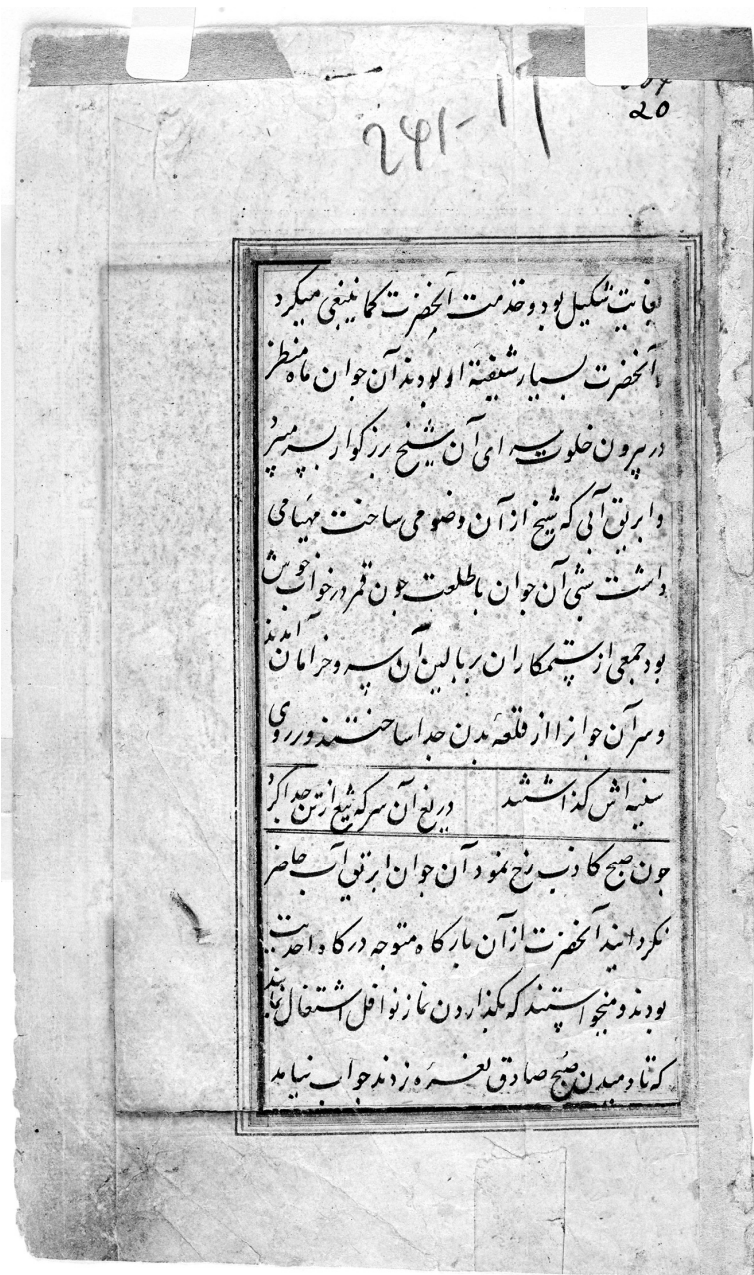 20
241-11
بغایت شکیل بود و خدمت آنحضرت کما ینبغی میکرد
آنحضرت بسیار شیفتهٔ او بودند آن جوان ماه منظر
در بیرون خلوت سرای آن شیخ بزرکوار بسر میبرد
و ابریق آبی که شیخ از آن وضو می ساخت مهیا می
داشت شبی آن جوان با طلعت چون قمر در خواب خوش
بود جمعی از ستمکاران بر بالین آن سرو خرامان آمدند
و سر آن جوانرا از قلعهٔ بدن جدا ساختند و بر روی
سینه اش کذاشتند دریغ آن سر که تیغ از تن جدا کرد
چون صبح کاذب رخ نمود آن جوان ابریق آب حاضر
نکردانید آنحضرت از آن بارکاه متوجه درکاه احدیت
بودند و میخواستند که بکذاردن نماز نوافل اشتغال نمایند
که تا دمیدن صبح صادق نعره زدند جواب نیامد